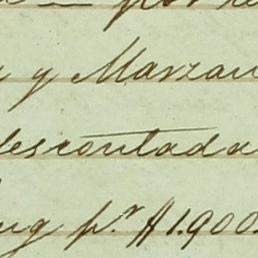 por
y y Marzan
descontada
ug pr. $1.900.